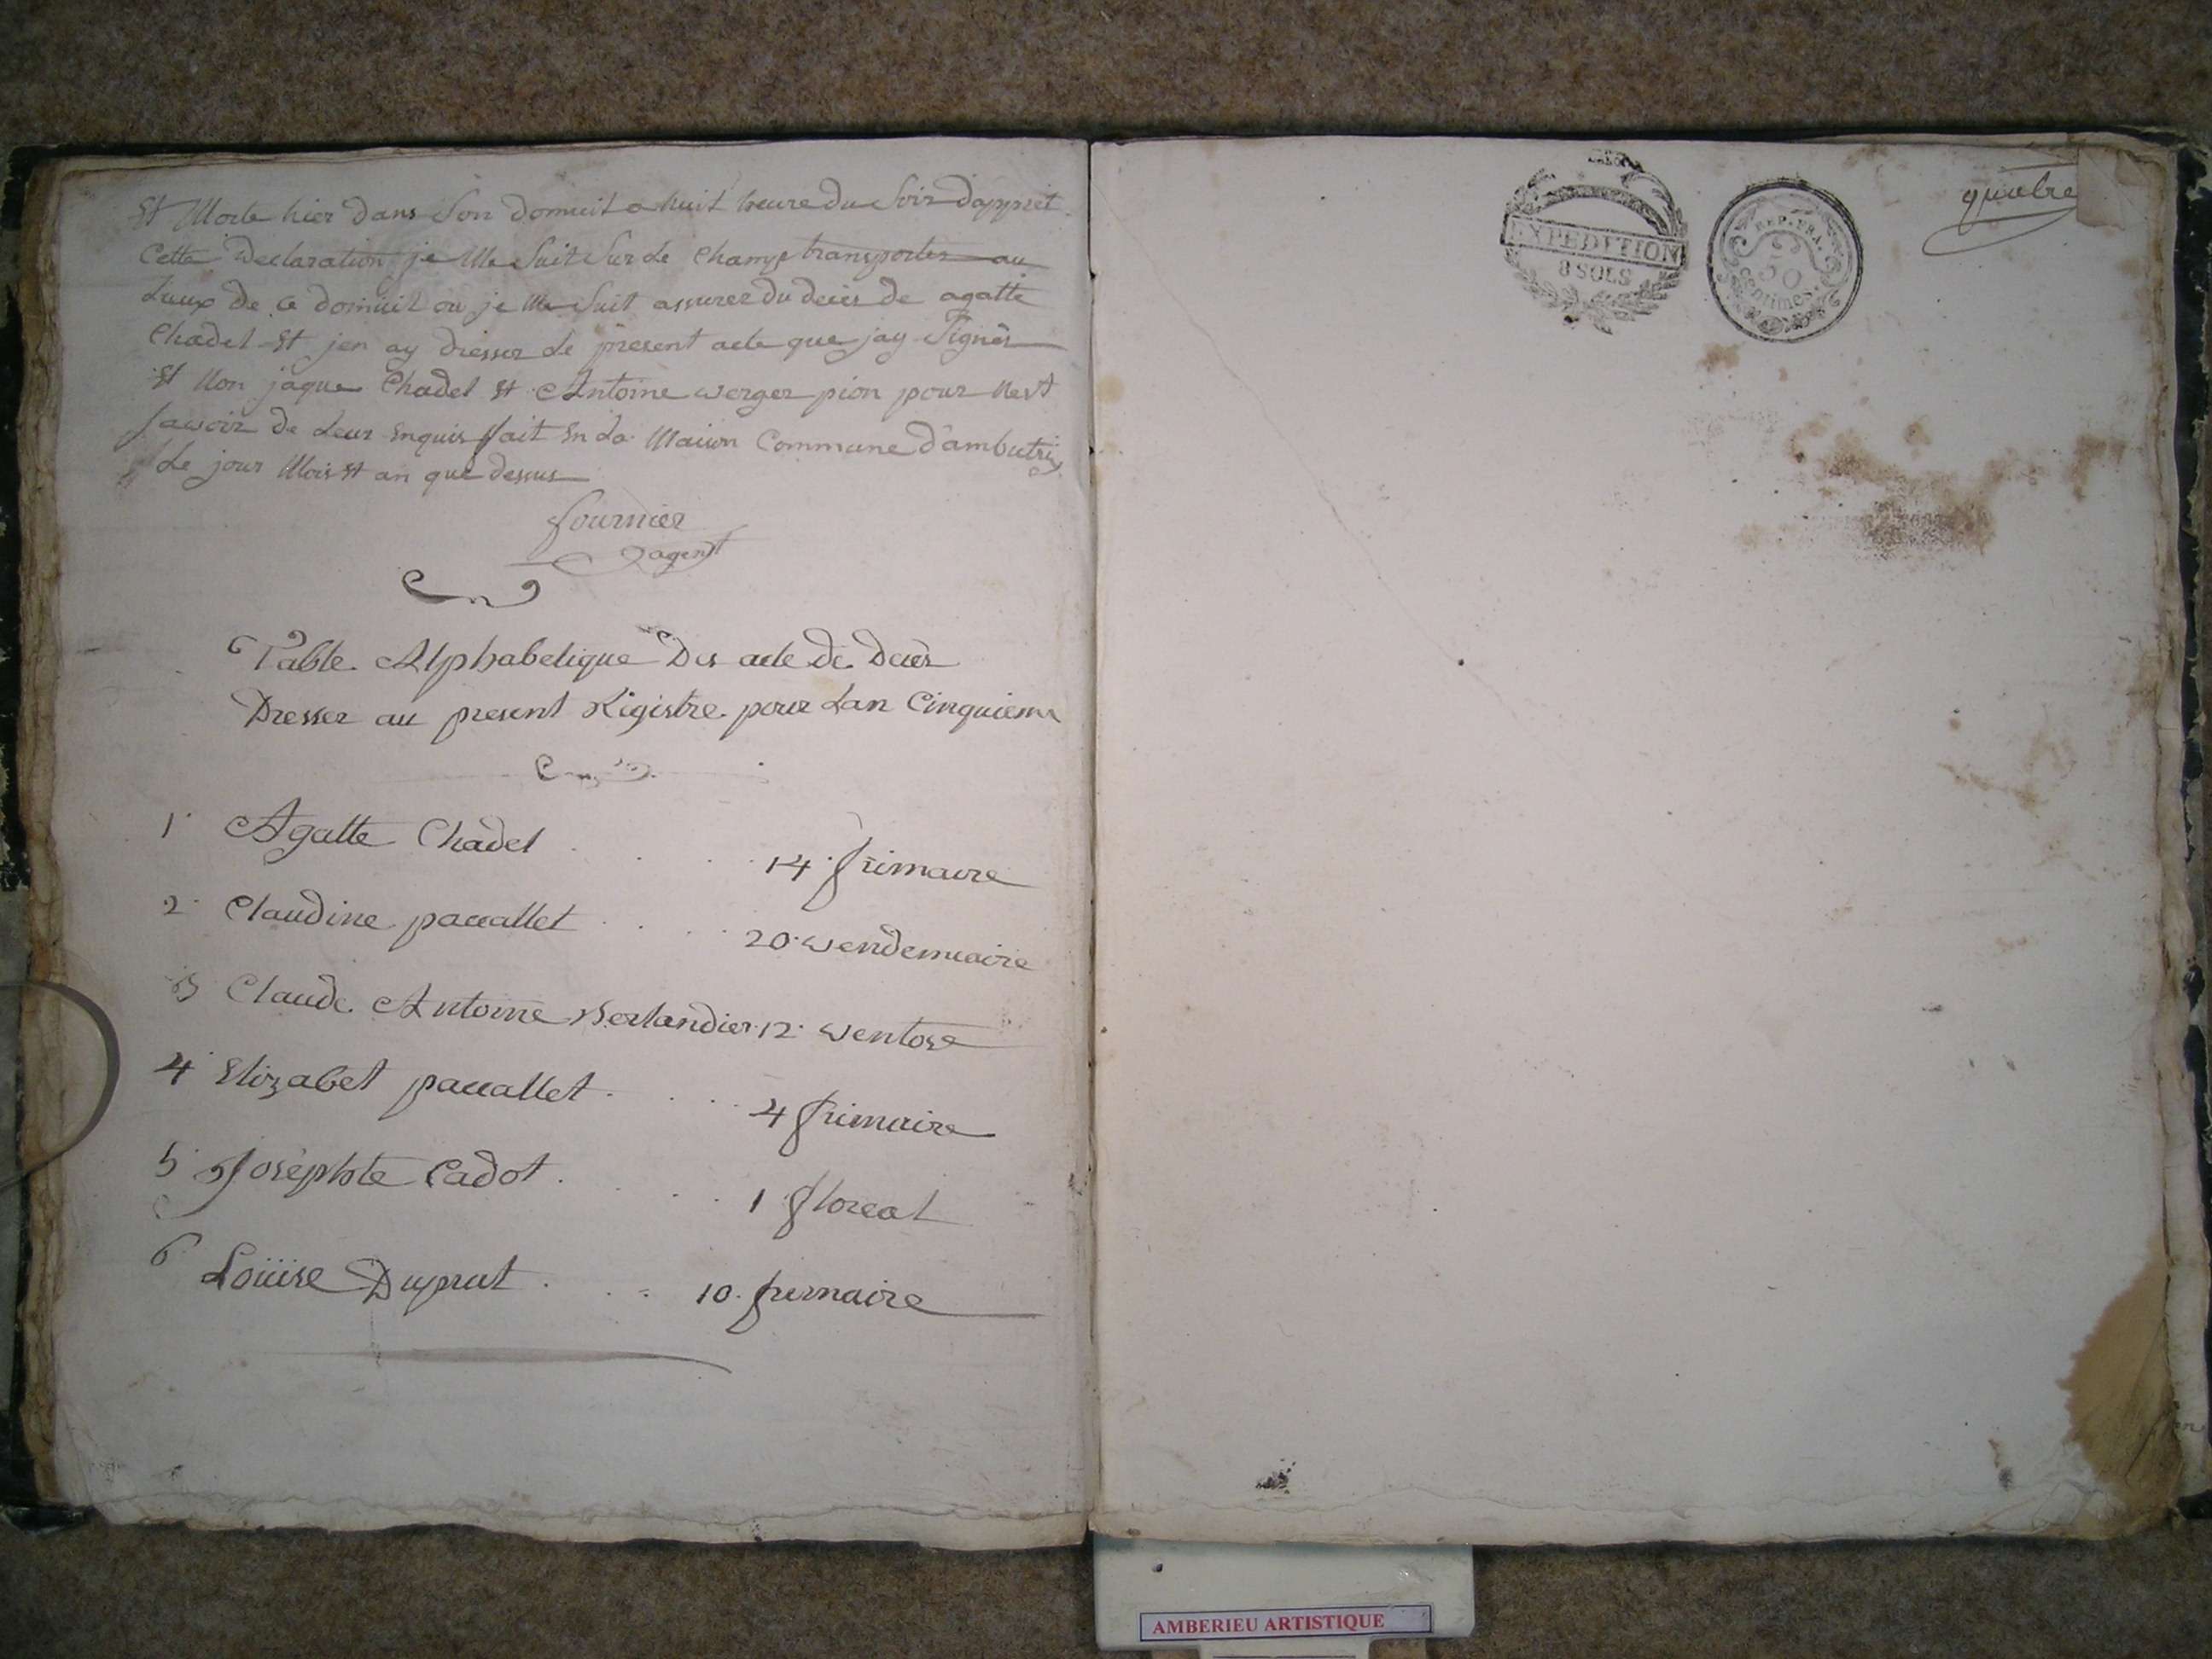 Et Morte hier dans Son domicil a huit heure du Soir dapprét
Cette declaration je Me Suit Sur Le Champ transporter au
Lieux de ce domicil ou je Me Suit assurer du deces de agatte
Chadel Et jen ay dresser Le present acte que jay Signer
Et Non jaque Chadel Et Antoine werger pion pour Nest
Sawoir de Leur Enquis fait En La Maison Commune d'ambutrix
Le jour Mois Et an que dessus
fournier
agent
Table Alphabetique Des acte de Decès
Dresser au present Registre pour Lan Cinquieme
1 Agatte Chadel . . . . 14 frimaire
2 Claudine paccallet . . . . 20 wendemiaire
3 Claude Antoine Berlandier 12 wentose
4 Elizabet paccallet . . . . 4 frimaire
5 Josephte Cadot . . . . 1 floreal
6 Loüise Duprat . . . 10 frimaire
EXPEDITION
8 SOLS
REP. FRA.
50
centimes.
quatre
AMBERIEU ARTISTIQUE